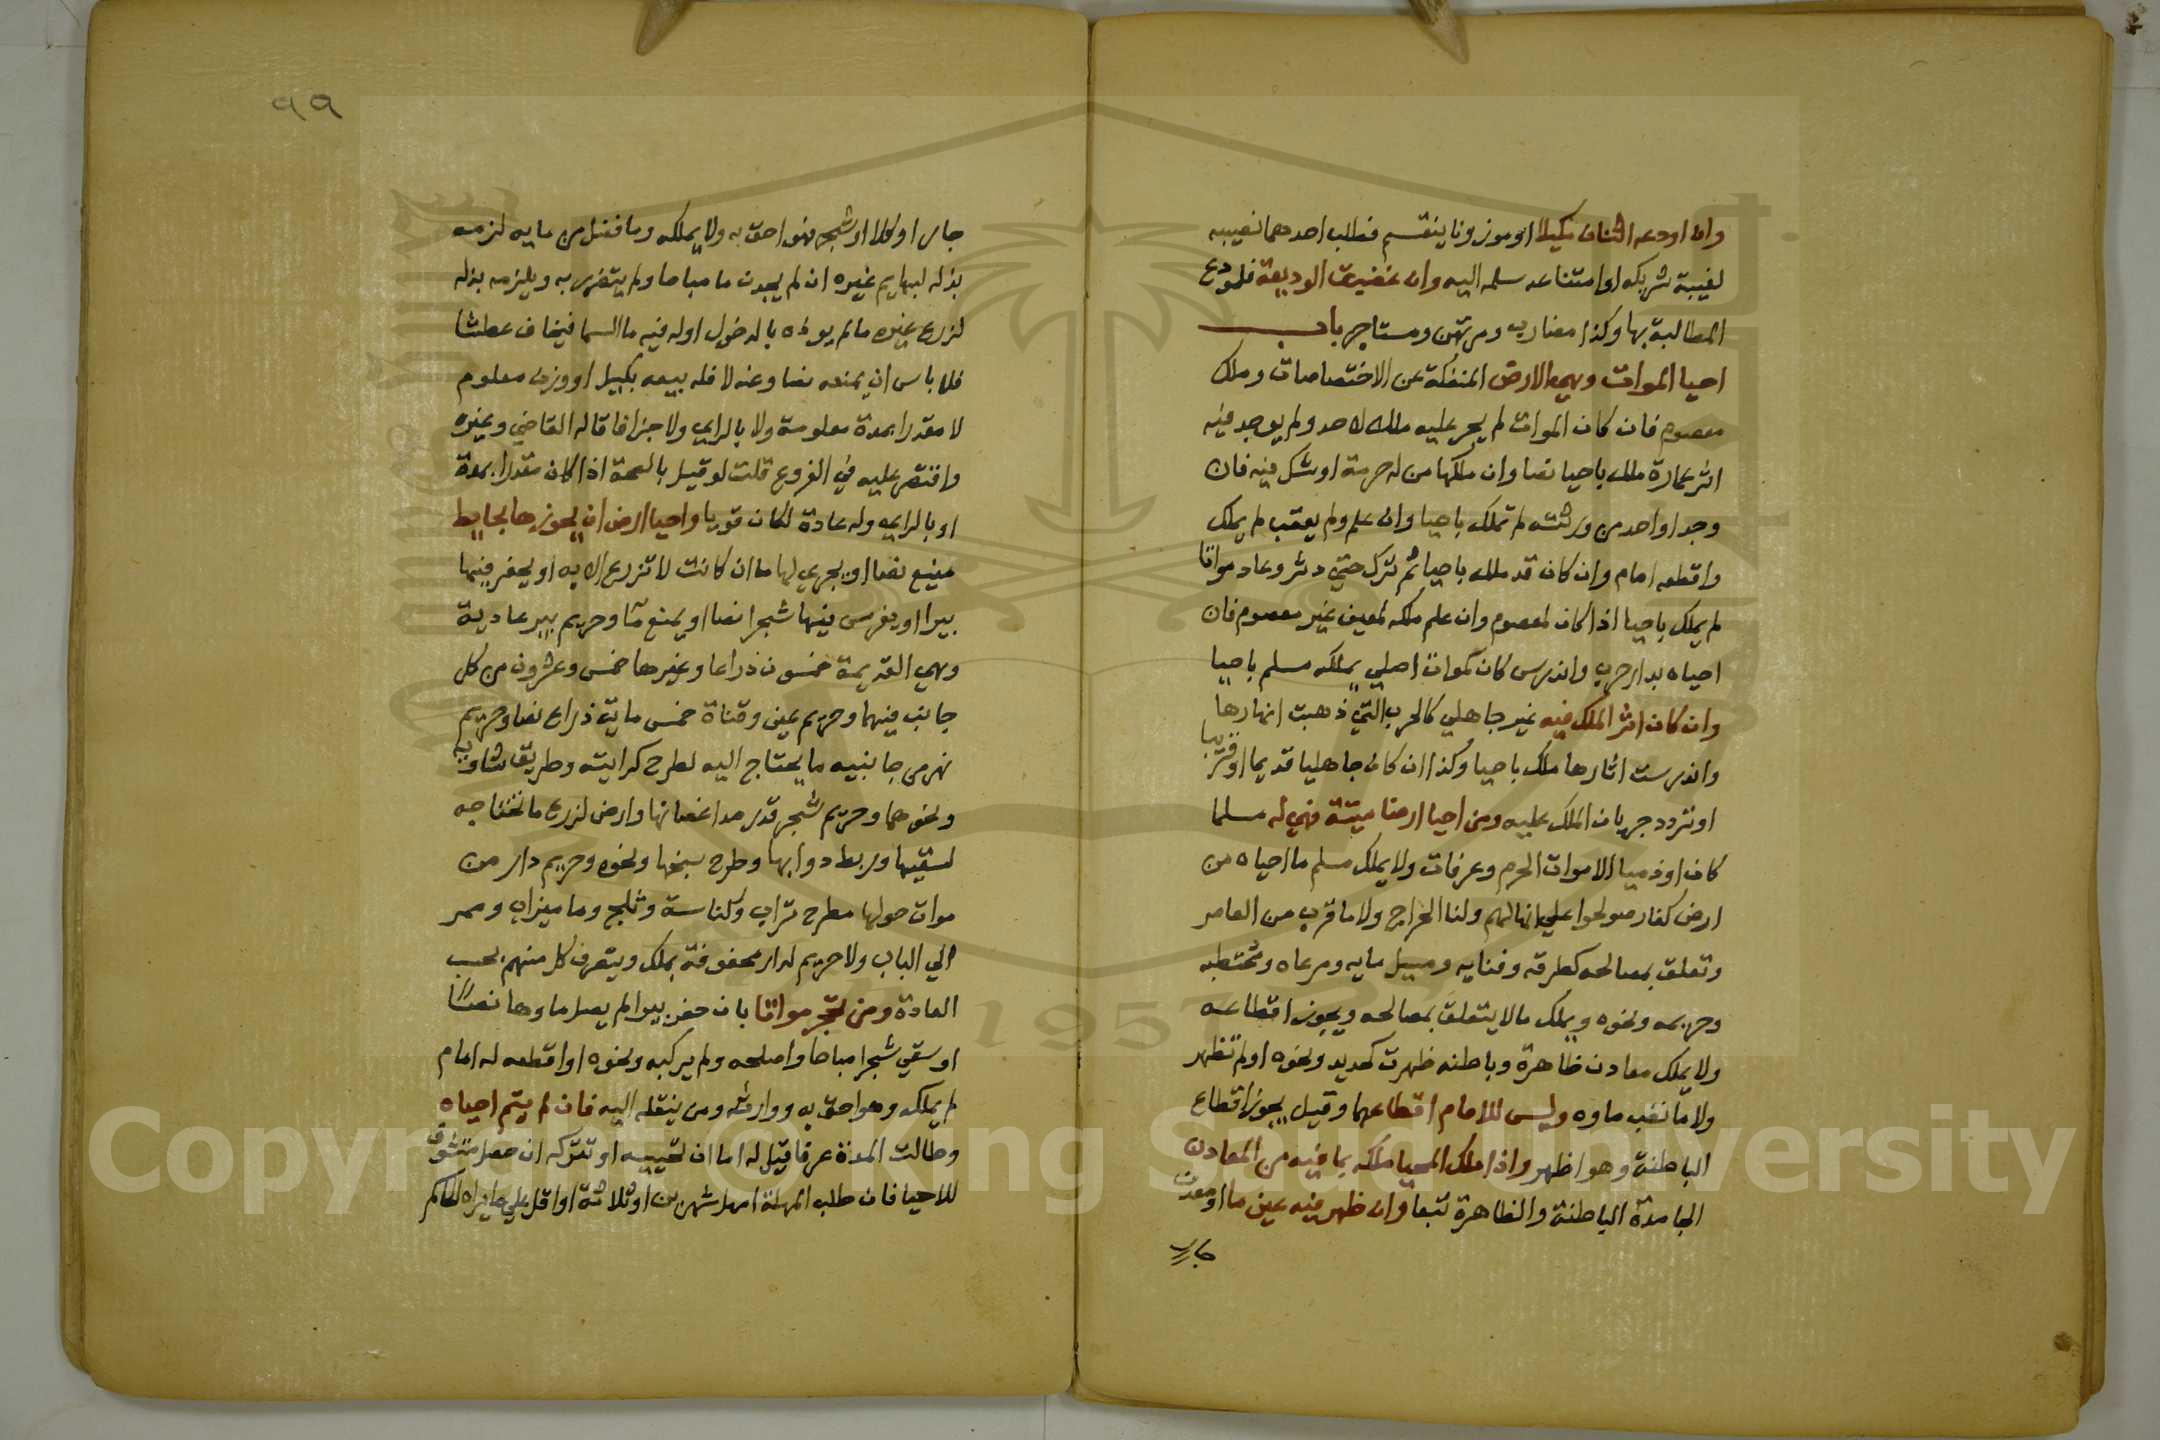 وان اودعه اثنان مكيلا او موزونا ينقسم فطلب احدهما نصيبه
لغيبة شريكه او امتناعه سلمه اليه وان غضبت الوديعة فلمودع
المطالبة بها وكذا مضارب ومرتهن ومستاجر باب
احيا الموات وهي الارض المنفكة عن الاختصاصات وملك
معصوم فان كان الموات لم يجر عليه ملك لاحد ولم يوجد فيه
اثر عمارة ملك باحيا نصا وان ملكها من له حرمة او شك فيه فان
وجد او احد من ورثته لم تملك باحيا وان علم ولم يعقب لم يملك
واقطعه امام وان كان قد ملك باحيا ثم ترك حتي دثر وعاد مواتا
لم يملك باحيا اذا كان لمعصوم وان علم ملكه لمعين غير معصوم فان
احياه بدار حرب واندرس كان كموات اصلي يملكه مسلم باحيا
وان كان اثر الملك فيه غير جاهلي كالخرب التي ذهبت انهارها
واندرست اثارها ملك باحيا وكذا ان كان جاهليا قديما او قريبا
او تردد جريان الملك عليه ومن احيا ارضا ميتة فهي له مسلما
كان او ذميا الا موات الحرم وعرفات ولا يملك مسلم ما احياه من
ارض كفار صولحوا علي انها لهم ولنا الخراج ولا ما قرب من العامر
وتعلق بمصالحه كطرقه وفنايه ومسيل مايه ومرعاه ومحتطبه
وحريمه ونحوه ويملك ما لا يتعلق بمصالحه ويجوز اقطاعه
ولا يملك معادن ظاهرة وباطنه ظهرت كحديد ونحوه او لم تظهر
ولا ما نضب ماوه وليس للامام اقطاعهما وقيل يجوز اقطاع
الباطنة وهو اظهر واذا ملك المحيا ملكه بما فيه من المعادن
الجامدة الباطنة والظاهرة تبعا وان ظهر فيه عين ما او معدن
جار
٩٩
جار او كلا او شجر فهو احق به ولا يملكه وما فضل من مايه لزمه
بذله لبهايم غيره ان لم يجدن ما مباحا ولم يتضرر به ويلزمه بذله
لزرع غيره ما لم يوذه بالدخول او له فيه ما السما فيخاف عطشا
فلا باس ان يمنعه نصا وعنه لا فله بيعه بكيل او وزن معلوم
لا مقدرا بمدة معلومة ولا بالراي ولا جزافا قاله القاضي وغيره
واقتصر عليه في الفروع قلت لو قيل بالصحة اذا كان مقدرا بمدة
او بالراي وله عادة لكان قويا واحيا ارض ان يحوزها بحايط
منيع نصا او يجري لها ما ان كانت لا تزرع الا به او يحفر فيها
بيرا او يغرس فيها شجرا نصا او يمنع ما وحريم بير عادية
وهي القديمة خمسون ذراعا وغيرها خمس وعشرون من كل
جانب فيهما وحريم عين وقناة خمس ماية ذراع نصا وحريم
نهر من جانبيه ما يحتاج اليه لطرح كرايته وطريق شاويه
ونحوهما وحريم شجر قدر مد اغصانها وارض لزرع ما تحتاجه
لسقيها وربط دوابها وطرح سبخها ونحوه وحريم دار من
موات حولها مطرح تراب وكناسة وثلج وما ميزاب وممر
الي الباب ولا حريم لدار محفوفة بملك ويتصرف كل منهم بحسب
العادة ومن تحجر مواتا بان حفر بيرا لم يصل ماوها نصا
او سقي شجرا مباحا واصلحه ولم يركبه ونحوه او اقطعه له امام
لم يملكه وهو احق به ووارثه ومن ينقله اليه فان لم يتم احياه
وطالت المدة عرفا قيل له اما ان تحييه او تتركه ان حصل متشوف
للاحيا فان طلب المهلة امهل شهرين او ثلاثة او اقل علي ما يراه الحاكم